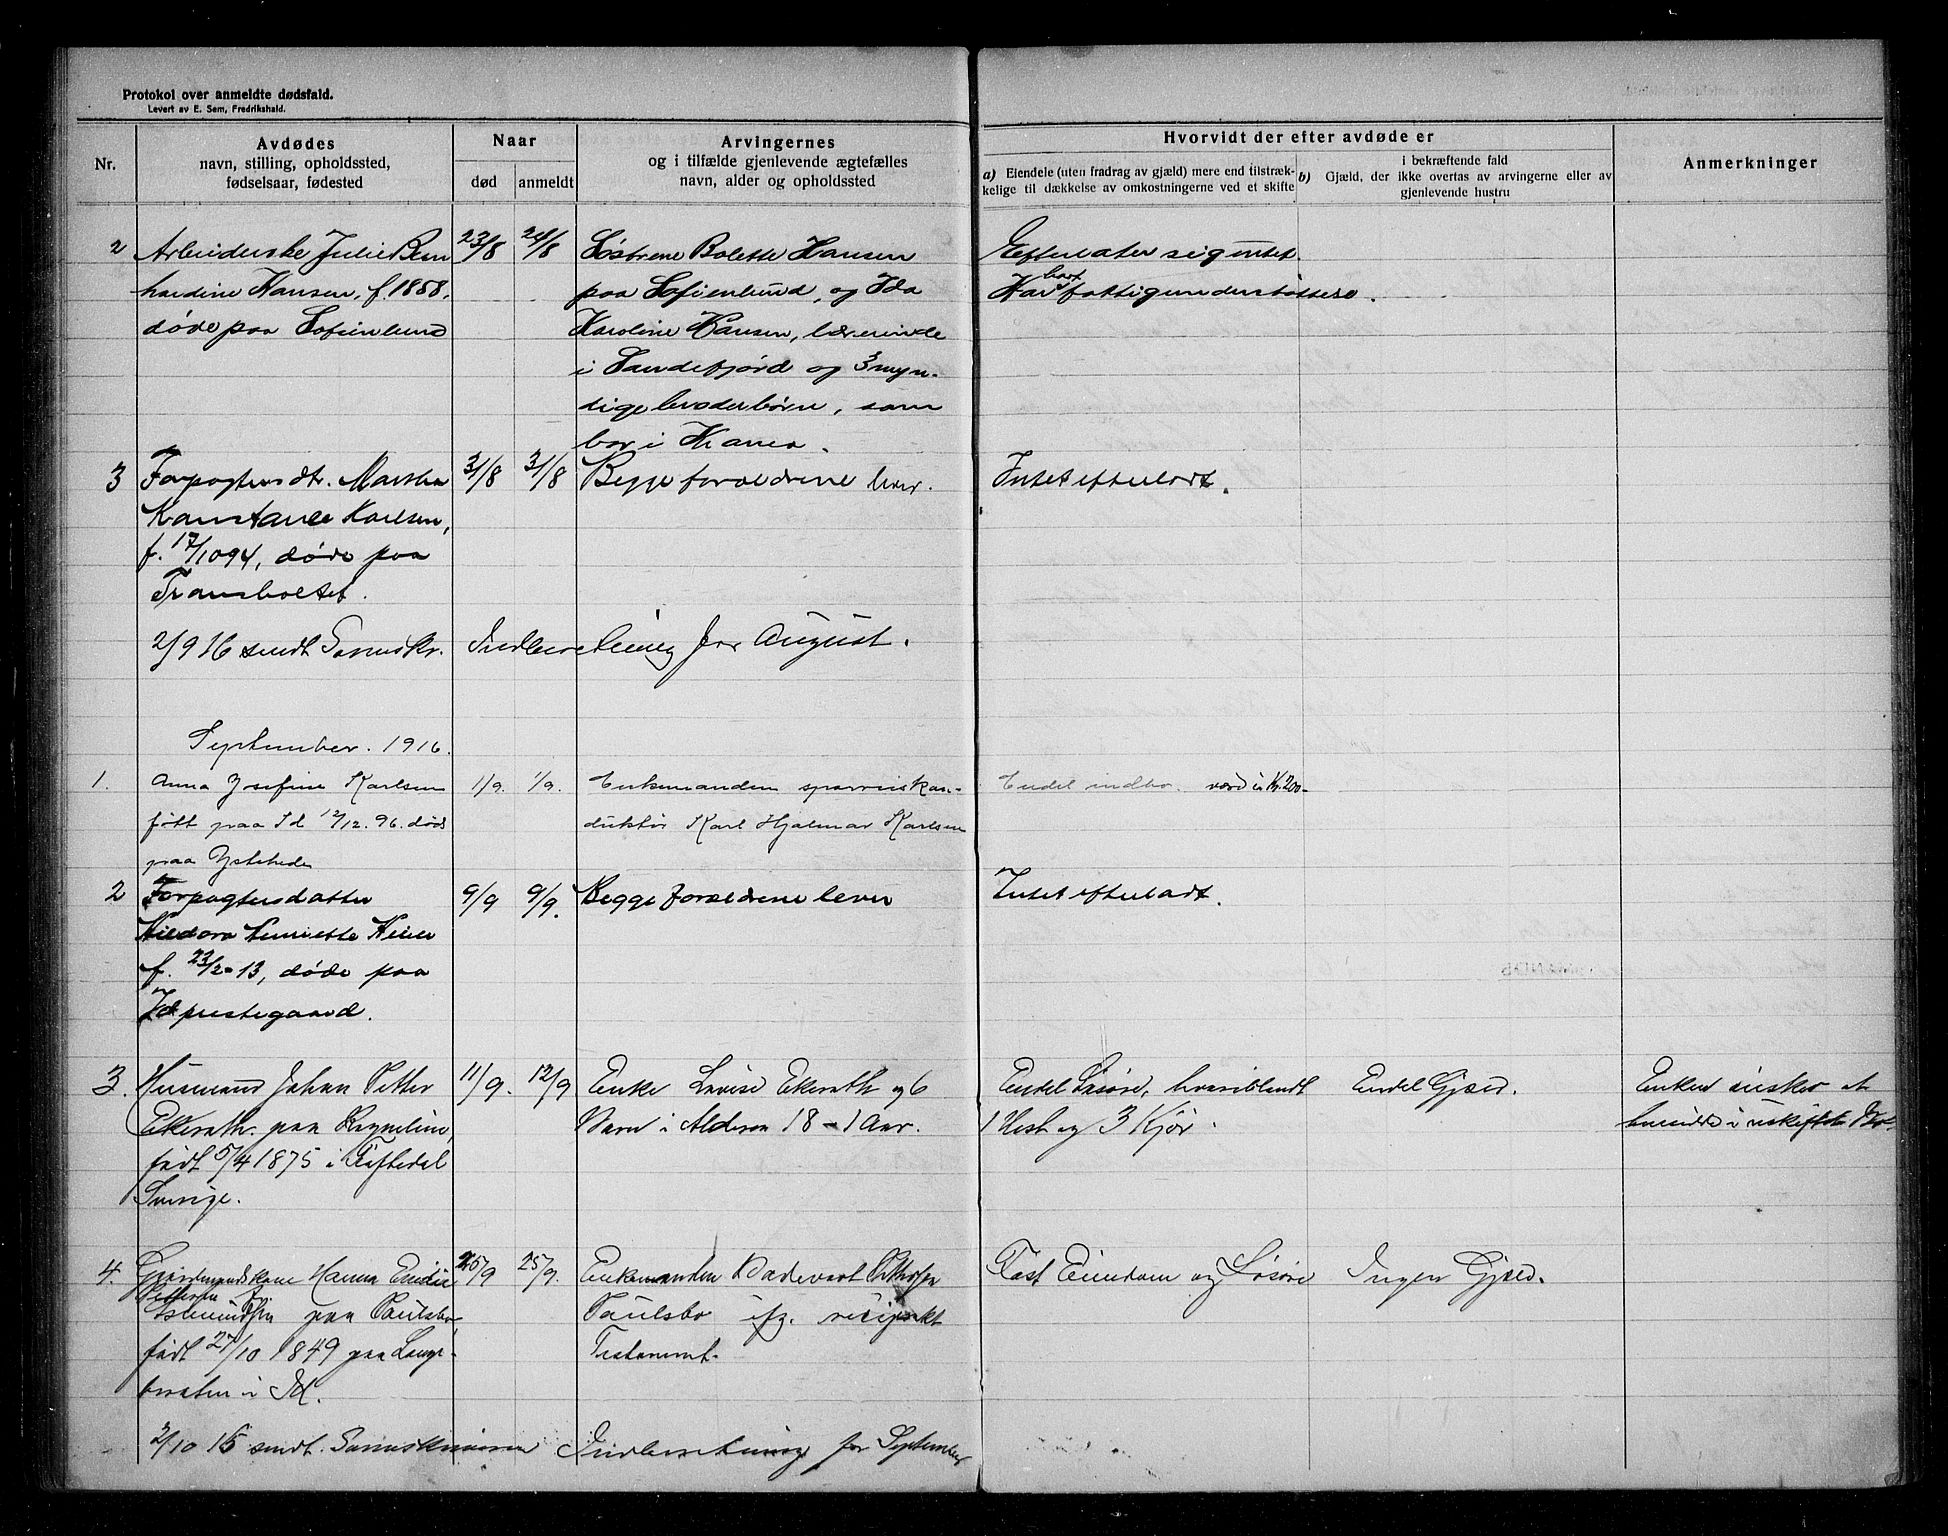 Protokol over anmeldte dødsfald.
Levert av E. Sem, Fredrikshald.
Nr.
Avdødes
navn, stilling, opholdssted,
fødselsaar, fødested
Naar
død
anmeldt
Arvingernes
og i tilfælde gjenlevende ægtefælles
navn, alder og opholdssted
Hvorvidt der efter avdøde er
a) Eiendele (uten fradrag av gjæld) mere end tilstræk-
kelige til dækkelse av omkostningerne ved et skifte
i bekræftende fald
b) Gjæld, der ikke overtas av arvingerne eller av
gjenlevende hustru
Anmerkninger
2
Arbeiderske Julie Bern
hardine Hansen, f. 1858,
døde paa Sofienlund
23/8
24/8
Søstrene Bolette Hansen
paa Sofienlund, og Ida
Karoline Hansen, lærerinde
i Sandefjord og 3 myn-
dige broderbørn, som
bor i Krania.
Efterlater sig intet.
Har hat fattigunderstøttelse.
3
Forpagtersdtr. Martha
Konstance Karlsen,
f. 17/10 94, døde paa
31/8
31/8
Begge forældrene lever.
Intet efterladt.
2/9 16 sendt Sorenskr. Indberetning for August.
September. 1916.
1.
Anna Josefine Karlsen
født paa Id 12/12. 96. død
paa Ystehede
1/9.
1/9.
Enkemanden sporveiskon-
duktør Karl Hjalmar Karlsen
Endel indbo. værd ca Kr. 200-
2
Forpagtersdatter
Henriette
f. 23/2-13, døde paa
Id prestegaard.
9/9
9/9.
Begge forældrene lever
Intet efterladt.
3.
Husmand Johan Petter
Ekerath. paa
født 5/4 1875 i Töftedal
Sverige.
11/9.
12/9
Enke Lovise Ekerath og 6
Barn i Alderen 18 - 1 Aar.
Endel Løsøre, hvoriblandt
1 Hest og 3 Kjør.
Endel Gjæld.
Enken ønsker at
hensidde i uskiftet Bo.
4.
Gaardmandskone Hanna Emilie
Pettersen f.
Asmundsen paa Paulsbo,
født 27/10 1849 paa Lang-
braaten i Id.
25/9
25/9.
Enkemanden
Paulsbo ifg. resiprokt
Testament.
Fast Eiendom og Løsøre
Ingen Gjæld.
2/10 16 sendt Sorenskriveren Indberetning for September